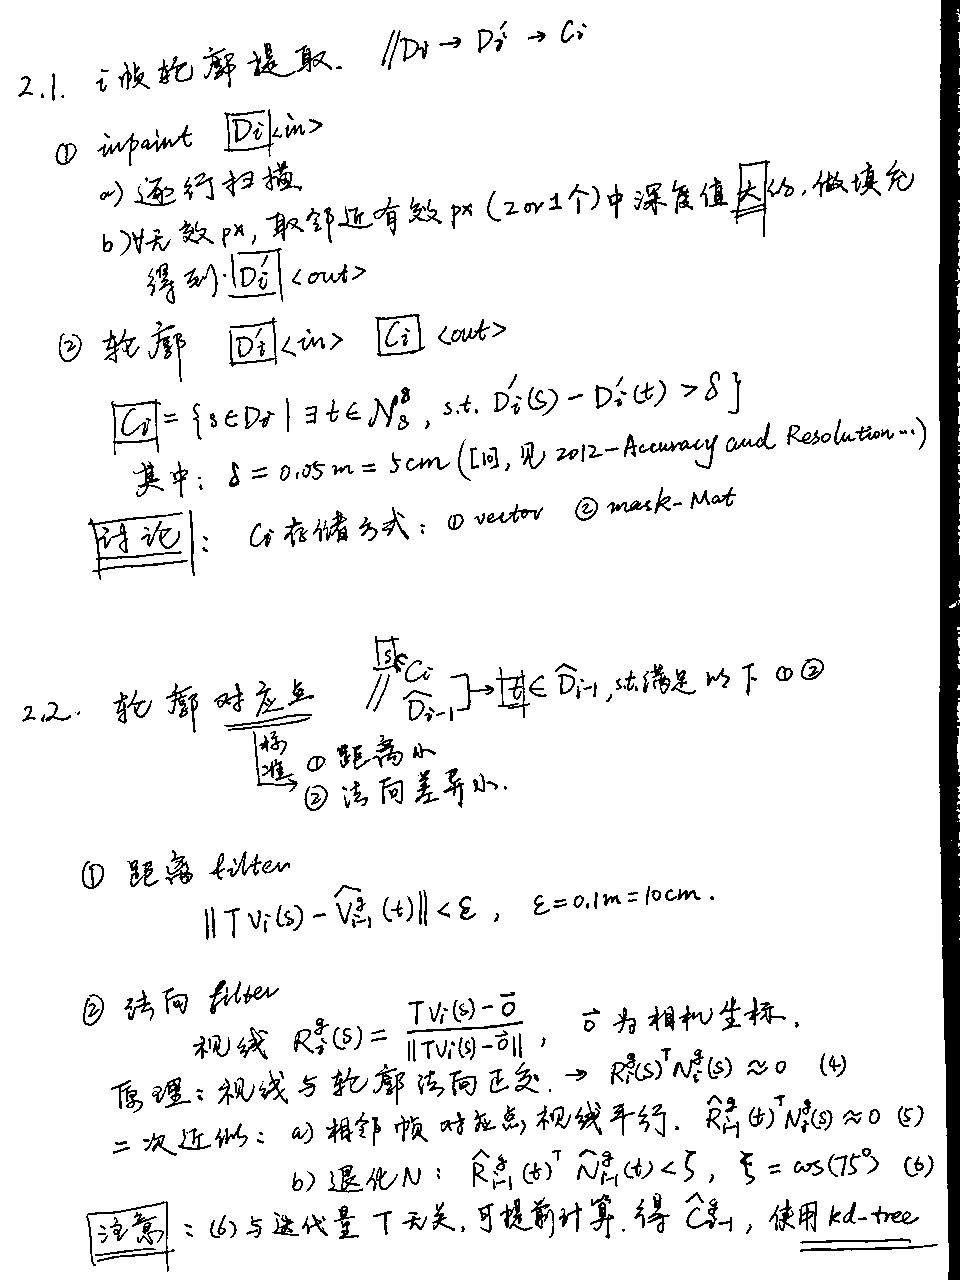 2.1. i帧轮廓提取. //Di → Di' → Ci
① inpaint Di <in>
a) 逐行扫描
b) ∀无效px, 取邻近有效px (2 or 1个)中深度值大的, 做填充
得到: Di' <out>
② 轮廓 Di' <in> Ci <out>
Ci = {s∈Di | ∃t∈N_s^8, s.t. Di'(s) - Di'(t) > δ}
其中: δ = 0.05m = 5cm ([回], 见 2012-Accuracy and Resolution...)
讨论: Ci存储方式: ① vector ② mask-Mat
2.2. 轮廓对应点 // s∈Ci D̂i-1 → t ∈ D̂i-1, s.t.满足以下 ① ②
标准 ① 距离小
② 法向差异小.
① 距离 filter
||T Vi(s) - V̂^g_i-1 (t)|| < ε, ε = 0.1m = 10cm.
② 法向 filter
视线 R^g_i(s) = (TVi(s) - o⃗) / ||TVi(s) - o⃗||, o⃗ 为相机坐标.
原理: 视线与轮廓法向正交. → R^g_i(s)^T N^g_i(s) ≈ 0 (4)
二次近似: a) 相邻帧对应点, 视线平行. R̂^g_i-1(t)^T N^g_i(s) ≈ 0 (5)
b) 退化N: R̂^g_i-1(t)^T N̂^g_i-1(t) < ξ, ξ = cos(75°) (6)
注意: (6)与迭代量 T 无关, 可提前计算. 得 Ĉ^g_i-1, 使用 kd-tree